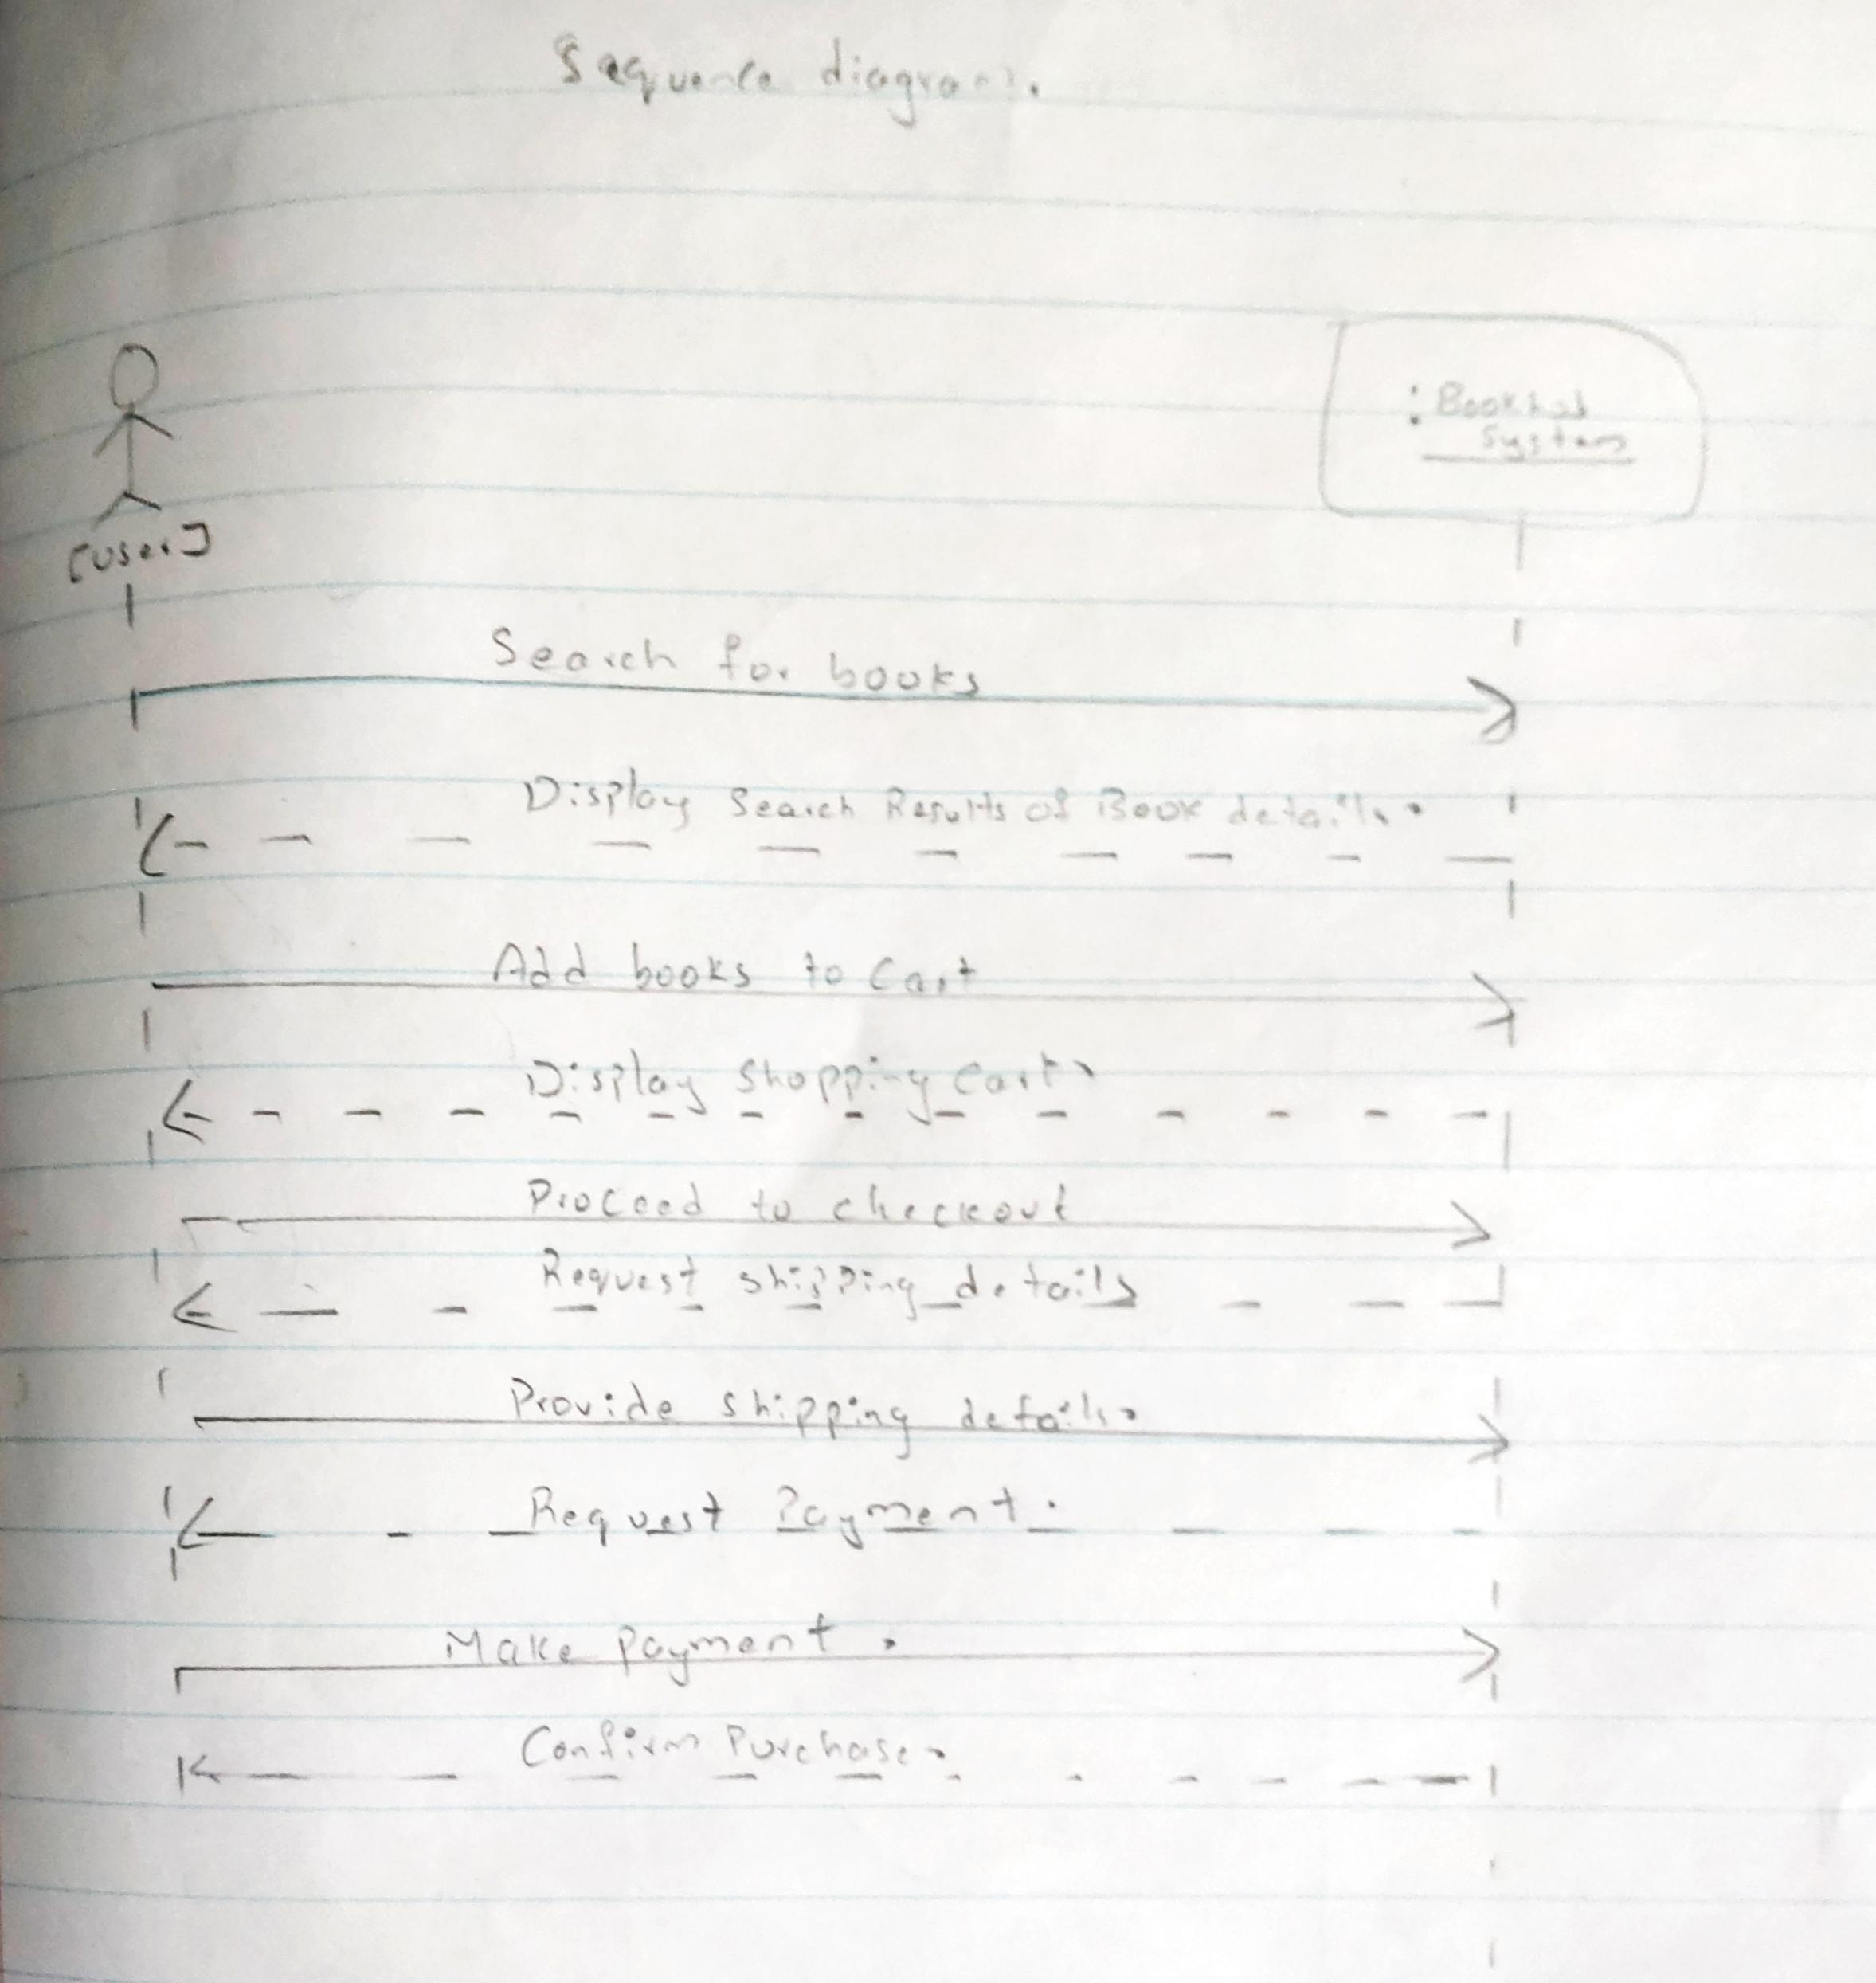 Sequence diagram.
: Book
System
[User]
Search for books
Display Search Results of Book details.
Add books to Cart
Display Shopping Cart.
Proceed to checkout
Request shipping details
Provide shipping details.
Request Payment.
Make Payment.
Confirm Purchase.